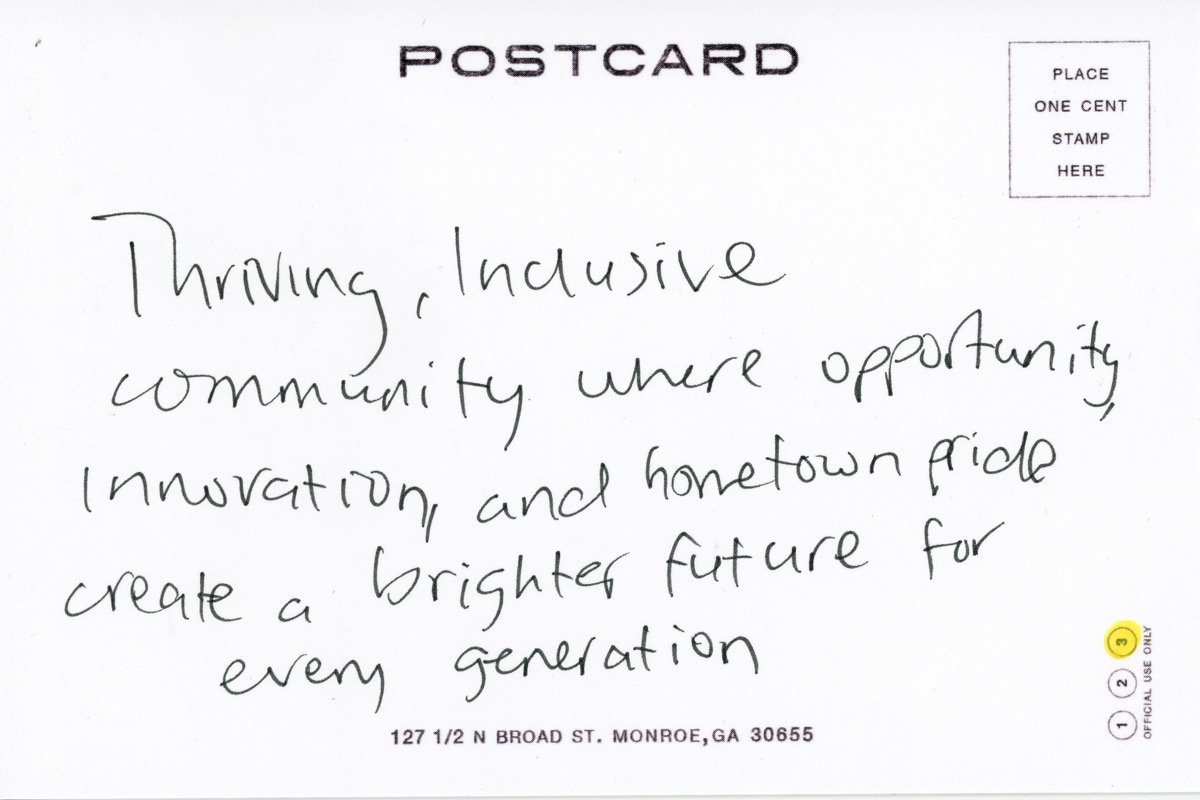 POSTCARD
PLACE
ONE CENT
STAMP
HERE
Thriving, Inclusive
community where opportunity,
Innovation, and hometown pride
create a brighter future for
every generation
127 1/2 N BROAD ST. MONROE,GA 30655
1 2 3
OFFICIAL USE ONLY